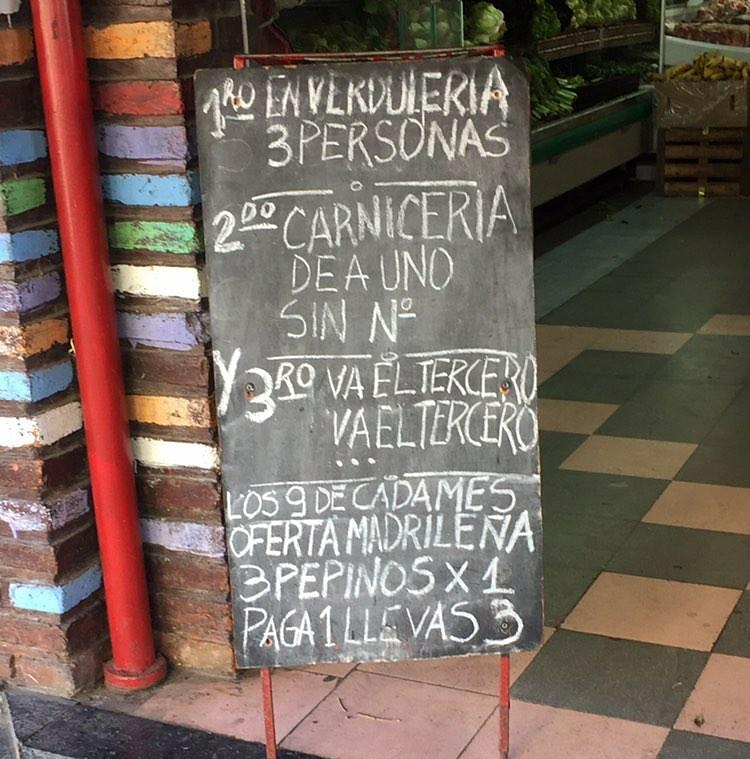 1RO EN VERDULERIA
3 PERSONAS
2DO CARNICERIA
DE A UNO
SIN Nº
Y 3RO VA EL TERCERO
VA EL TERCERO
...
LOS 9 DE CADA MES
OFERTA MADRILEÑA
3 PEPINOS X 1
PAGA 1 LLEVAS 3